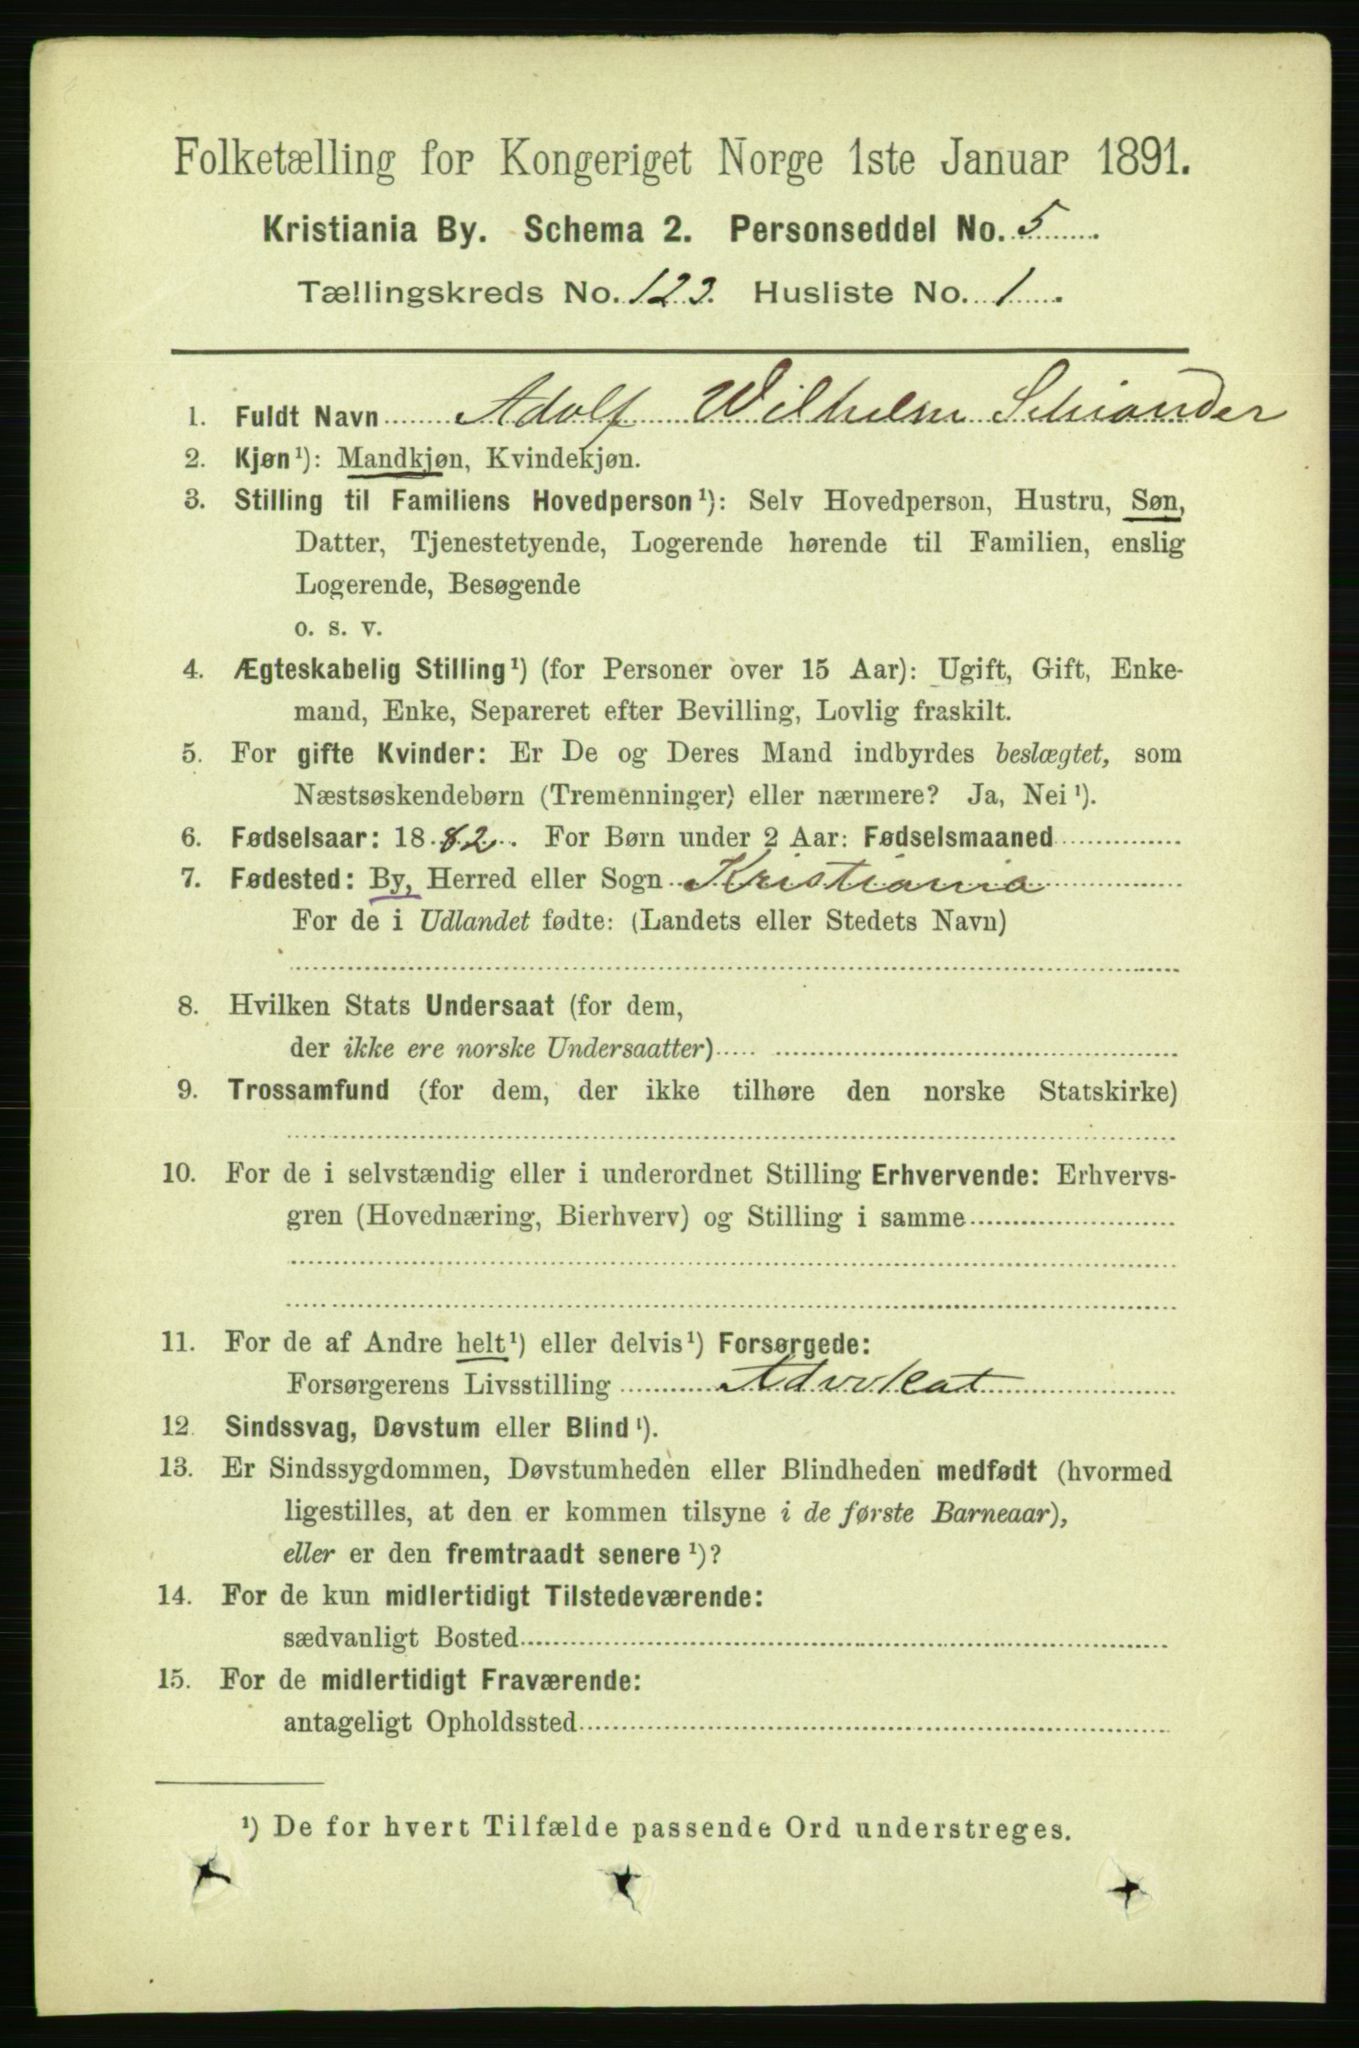 Folketælling for Kongeriget Norge 1ste Januar 1891.
Kristiania By. Schema 2. Personseddel No. 5
Tællingskreds No. 123. Husliste No. 1
1. Fuldt Navn Adolf Wilhelm Schiander
2. Kjøn¹): Mandkjøn, Kvindekjøn.
3. Stilling til Familiens Hovedperson¹): Selv Hovedperson, Hustru, Søn,
Datter, Tjenestetyende, Logerende hørende til Familien, enslig
Logerende, Besøgende
o. s. v.
4. Ægteskabelig Stilling¹) (for Personer over 15 Aar): Ugift, Gift, Enke-
mand, Enke, Separeret efter Bevilling, Lovlig fraskilt.
5. For gifte Kvinder: Er De og Deres Mand indbyrdes beslægtet, som
Næstsøskendebørn (Tremenninger) eller nærmere? Ja, Nei¹).
6. Fødselsaar: 1882. For Børn under 2 Aar: Fødselsmaaned
7. Fødested: By, Herred eller Sogn Kristiania
For de i Udlandet fødte: (Landets eller Stedets Navn)
8. Hvilken Stats Undersaat (for dem,
der ikke ere norske Undersaatter)
9. Trossamfund (for dem, der ikke tilhøre den norske Statskirke)
10. For de i selvstændig eller i underordnet Stilling Erhvervende: Erhvervs-
gren (Hovednæring, Bierhverv) og Stilling i samme
11. For de af Andre helt¹) eller delvis¹) Forsørgede:
Forsørgerens Livsstilling Advokat
12. Sindssvag, Døvstum eller Blind¹).
13. Er Sindssygdommen, Døvstumheden eller Blindheden medfødt (hvormed
ligestilles, at den er kommen tilsyne i de første Barneaar),
eller er den fremtraadt senere¹)?
14. For de kun midlertidigt Tilstedeværende:
sædvanligt Bosted
15. For de midlertidigt Fraværende:
antageligt Opholdssted
¹) De for hvert Tilfælde passende Ord understreges.